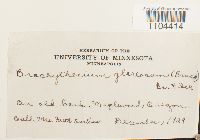 1104414
HERBARIUM OF THE
UNIVERSITY OF MINNESOTA
MINNEAPOLIS
Brachythecium glareosum (Bruch)
Br. & Sch.
On old bank, Maplewood, Oregon
Coll. Mrs. December, 1909